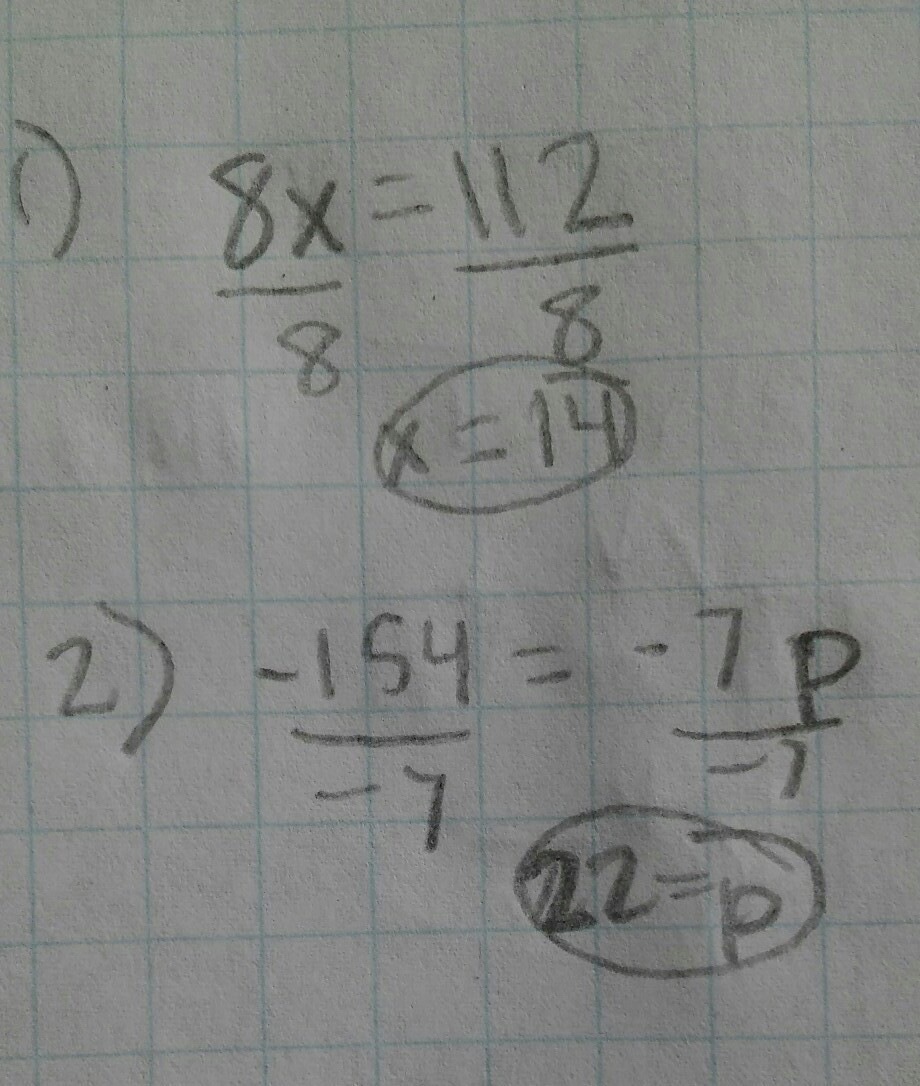 1) 8x = 112
8 8
x = 14
2) -154 = -7p
-7 -7
22 = p